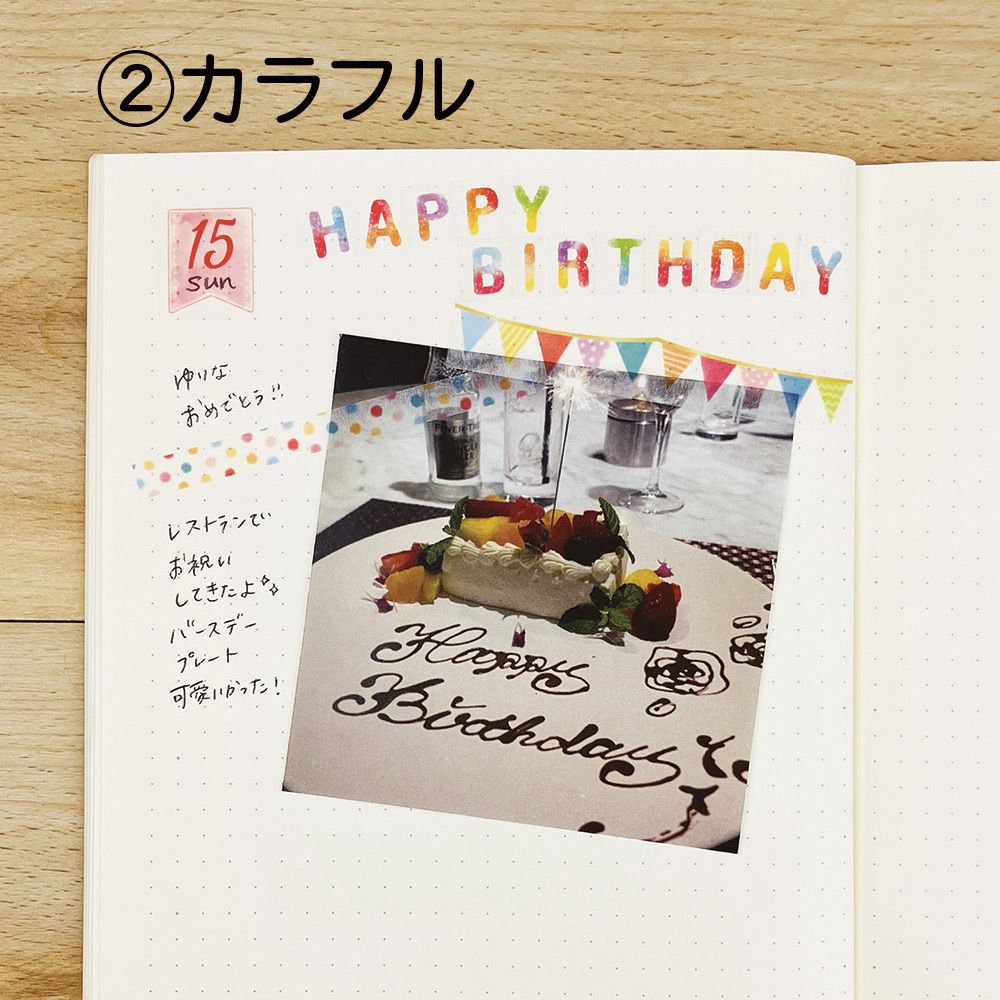 ②カラフル
15
sun
HAPPY
BIRTHDAY
ゆりな
おめでとう!!
レストランで
お祝い
してきたよ
バースデー
プレート
可愛いかった!
FEVER-TREE
Happy
Birthday